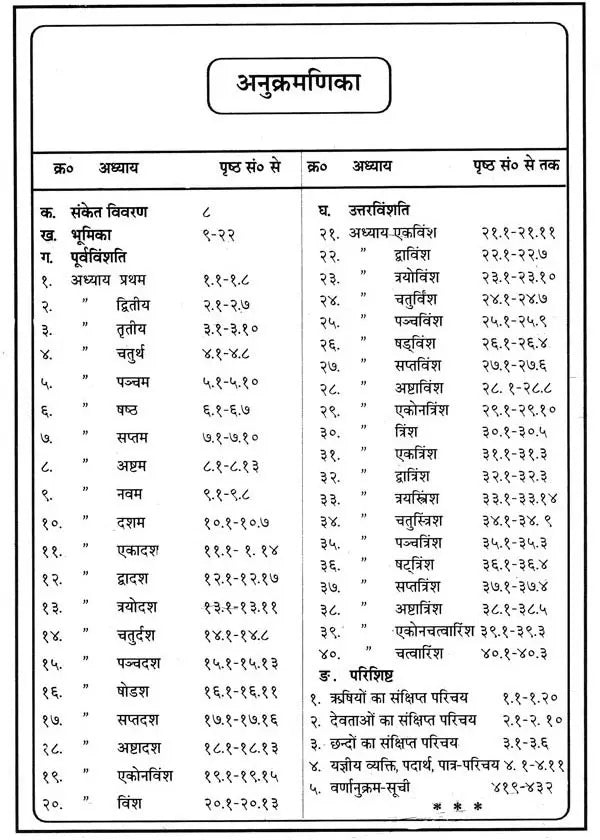 अनुक्रमणिका
क्र० अध्याय पृष्ठ सं० से
क. संकेत विवरण ८
ख. भूमिका ९-२२
ग. पूर्वविंशति
१. अध्याय प्रथम १.१-१.८
२. ” द्वितीय २.१-२.७
३. ” तृतीय ३.१-३.१०
४. ” चतुर्थ ४.१-४.८
५. ” पञ्चम ५.१-५.१०
६. ” षष्ठ ६.१-६.७
७. ” सप्तम ७.१-७.१०
८. ” अष्टम ८.१-८.१३
९. ” नवम ९.१-९.८
१०. ” दशम १०.१-१०.७
११. ” एकादश ११.१- १. १४
१२. ” द्वादश १२.१-१२.१७
१३. ” त्रयोदश १३.१-१३.११
१४. ” चतुर्दश १४.१-१४.८
१५. ” पञ्चदश १५.१-१५.१३
१६. ” षोडश १६.१-१६.११
१७. ” सप्तदश १७.१-१७.१६
१८. ” अष्टादश १८.१-१८.१३
१९. ” एकोनविंश १९.१-१९.१५
२०. ” विंश २०.१-२०.१३
क्र० अध्याय पृष्ठ सं० से तक
घ. उत्तरविंशति
२१. अध्याय एकविंश २१.१-२१.११
२२. ” द्वाविंश २२.१-२२.७
२३. ” त्रयोविंश २३.१-२३.१०
२४. ” चतुर्विंश २४.१-२४.७
२५. ” पञ्चविंश २५.१-२५.९
२६. ” षड्विंश २६.१-२६.४
२७. ” सप्तविंश २७.१-२७.६
२८. ” अष्टाविंश २८. १-२८.८
२९. ” एकोनत्रिंश २९.१-२९.१०
३०. ” त्रिंश ३०.१-३०.५
३१. ” एकत्रिंश ३१.१-३१.३
३२. ” द्वात्रिंश ३२.१-३२.३
३३. ” त्रयस्त्रिंश ३३.१-३३.१४
३४. ” चतुस्त्रिंश ३४.१-३४. ९
३५. ” पञ्चत्रिंश ३५.१-३५.३
३६. ” षट्त्रिंश ३६.१-३६.४
३७. ” सप्तत्रिंश ३७.१-३७.४
३८. ” अष्टात्रिंश ३८.१-३८.५
३९. ” एकोनचत्वारिंश ३९.१-३९.३
४०. ” चत्वारिंश ४०.१-४०.३
ङ. परिशिष्ट
१. ऋषियों का संक्षिप्त परिचय १.१-१.२०
२. देवताओं का संक्षिप्त परिचय २.१-२. १०
३. छन्दों का संक्षिप्त परिचय ३.१-३.६
४. यज्ञीय व्यक्ति, पदार्थ, पात्र-परिचय ४. १-४.११
५. वर्णानुक्रम-सूची ४१९-४३२
* * *